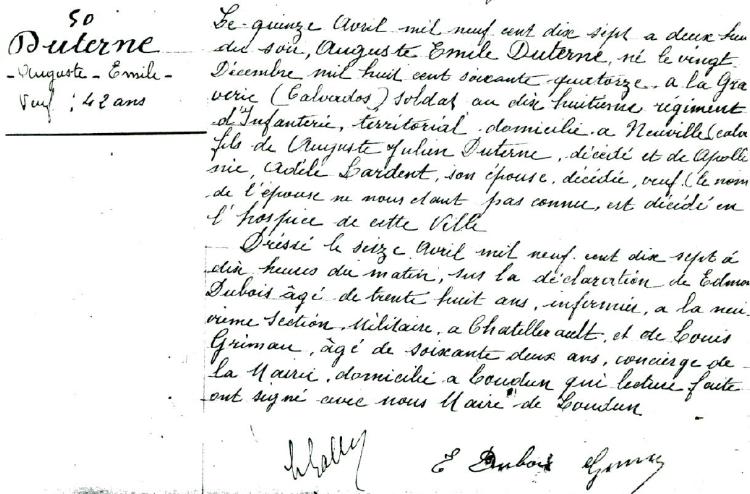 50
Duterne
- Auguste - Emile -
Veuf : 42 ans
Le quinze Avril mil neuf cent dix sept a deux heu
du soir, Auguste Emile Duterne, né le vingt
Décembre mil huit cent soixante quatorze a la Gra
verie (Calvados) soldat au dix huitieme regiment
d'Infanterie, territorial domicilié a Neuville (calva
fils de Auguste Julien Duterne, décédé et de Apolli
nie, Adèle Lardent, son épouse, décédée, veuf (le nom
de l'épouse ne nous étant pas connu, est décédé en
l'hospice de cette Ville
Dressé le seize Avril mil neuf cent dix sept á
dix heures du matin, sur la déclaration de Edmon
Dubois âgé de trente huit ans, infirmier, a la neu
vième Section Militaire, a Chatellerault, et de Louis
Grimau, âgé de soixante deux ans, concierge de
la Mairie, domicilié a Loudun qui lecture faite
ont signé avec nous Maire de Loudun
E Dubois